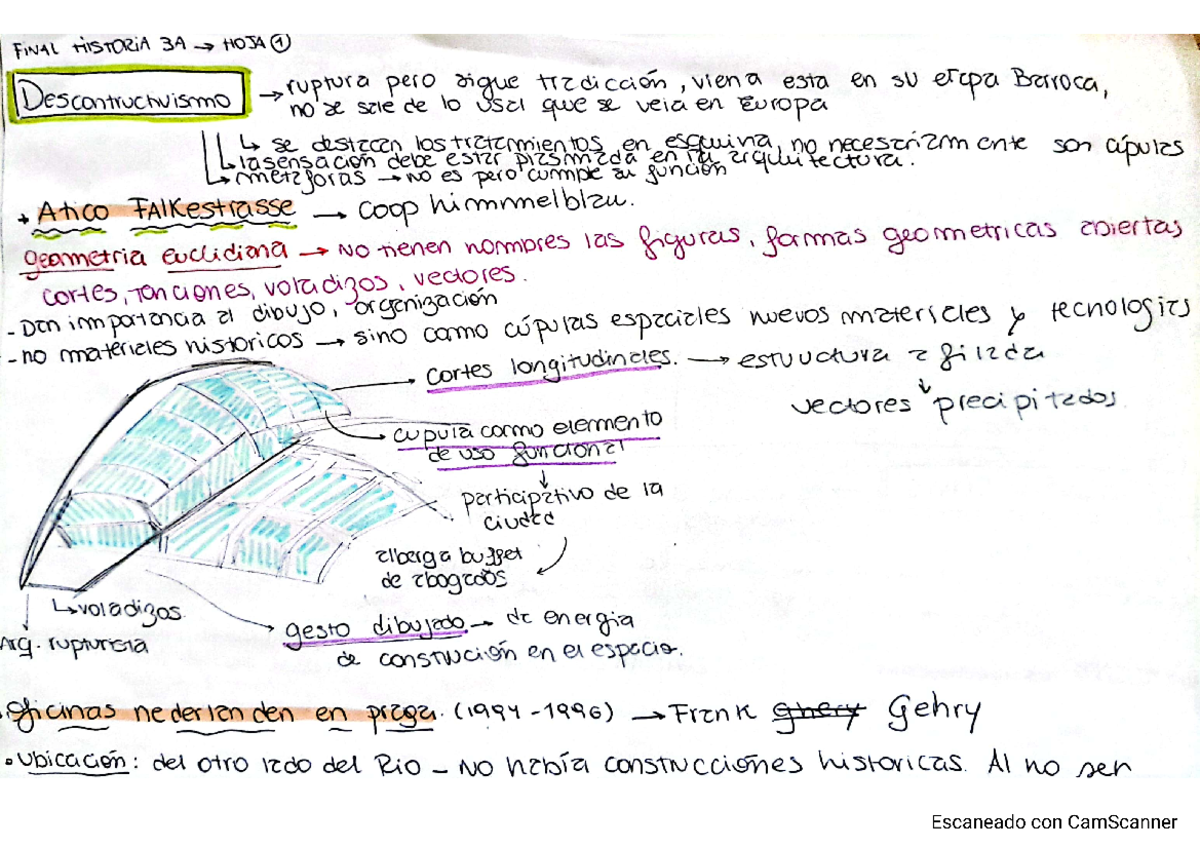 FINAL HISTORIA 3A → HOJA ①
Descontructivismo → ruptura pero sigue tradicción, viena esta en su etapa Barroca,
no se sale de lo usal que se veia en Europa
↳ se destacan los tratamientos en esquina, no necesariamente son cúpulas
↳ la sensación debe estar plasmada en la arquitectura.
↳ metaforas → no es pero cumple su función
→ Atico FALKestrasse → coop himmmelblau.
geometria euclidiana → NO tienen nombres las figuras, formas geometricas abiertas
cortes, tonciones, voladizos, vectores.
- Dan importancia al dibujo, organización
- no materiales historicos → sino como cúpulas espaciales nuevos materiales y tecnologias
cortes longitudinales. → estructura afilada
↓
vectores precipitados.
cupula como elemento
de uso funcional
↓
participativo de la
ciudad
alberga buffet
de abogados
↳ voladizos.
Arq. rupturista
gesto dibujado → de energia
de construcción en el espacio.
oficinas nederlanden en praga. (1994 - 1996) → Frank ghery Gehry
• Ubicación: del otro lado del Rio - No había construcciones historicas. Al no ser
Escaneado con CamScanner